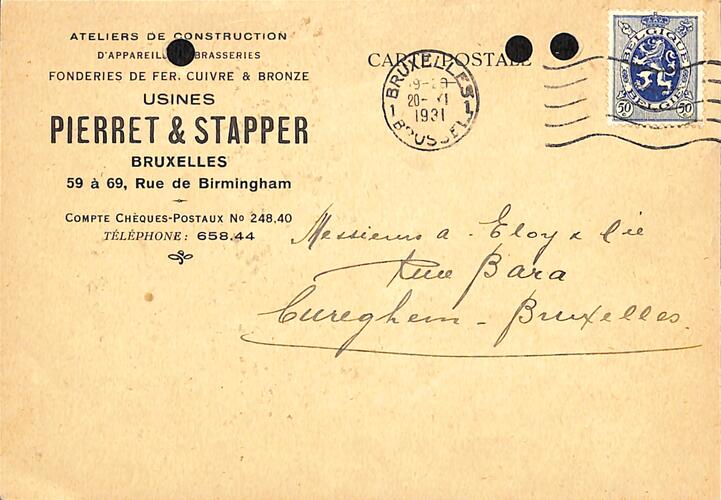 ATELIERS DE CONSTRUCTION
D'APPAREILS BRASSERIES
FONDERIES DE FER, CUIVRE & BRONZE
USINES
PIERRET & STAPPER
BRUXELLES
59 à 69, Rue de Birmingham
COMPTE CHÈQUES-POSTAUX No 248,40
TÉLÉPHONE: 658.44
CARTE POSTALE
BRUXELLES
20- XI
1931
1 BRUSSEL 1
BELGIQUE
BELGIË
50 50
Messieurs a. Eloy & Cie
Rue Bara
Cureghem - Bruxelles.